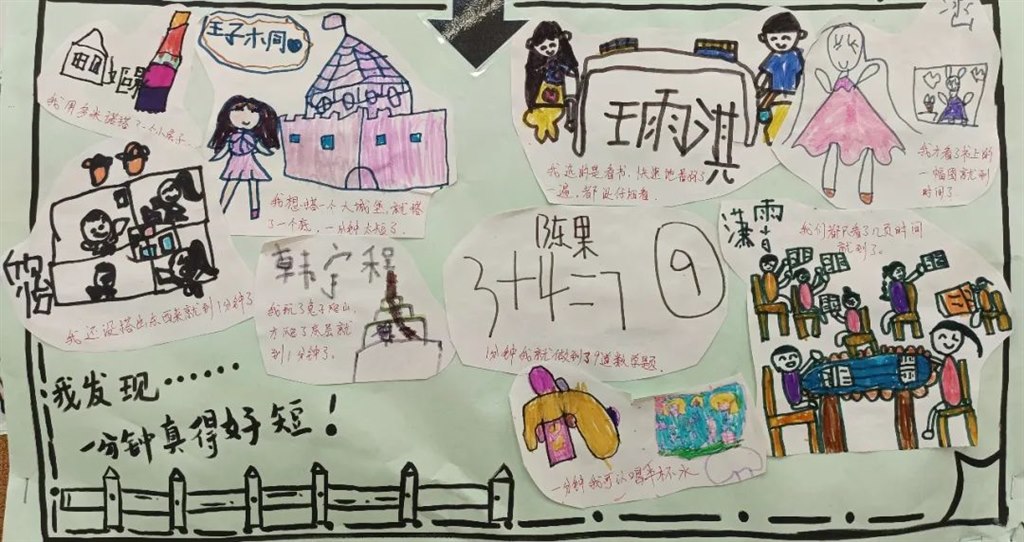 我用多米诺搭了一个小房子……
王子木同
我想搭一个大城堡,就搭
了一个底,一分钟太短了.
王雨淇
我选的是看书,快速地看了
一遍,都没仔细看
我才看了书上的
一幅图就到
时间了
怡
我还没搭出东西来就到1分钟了
韩宇程
我玩了兔子爬山,
才爬了底层就
到1分钟了.
陈果
3+4=7
9
1分钟我就做到了9道数学题.
潇雨
我们都只看了几页时间
就到了。
一分钟我可以喝半杯水
我发现……
一分钟真得好短!